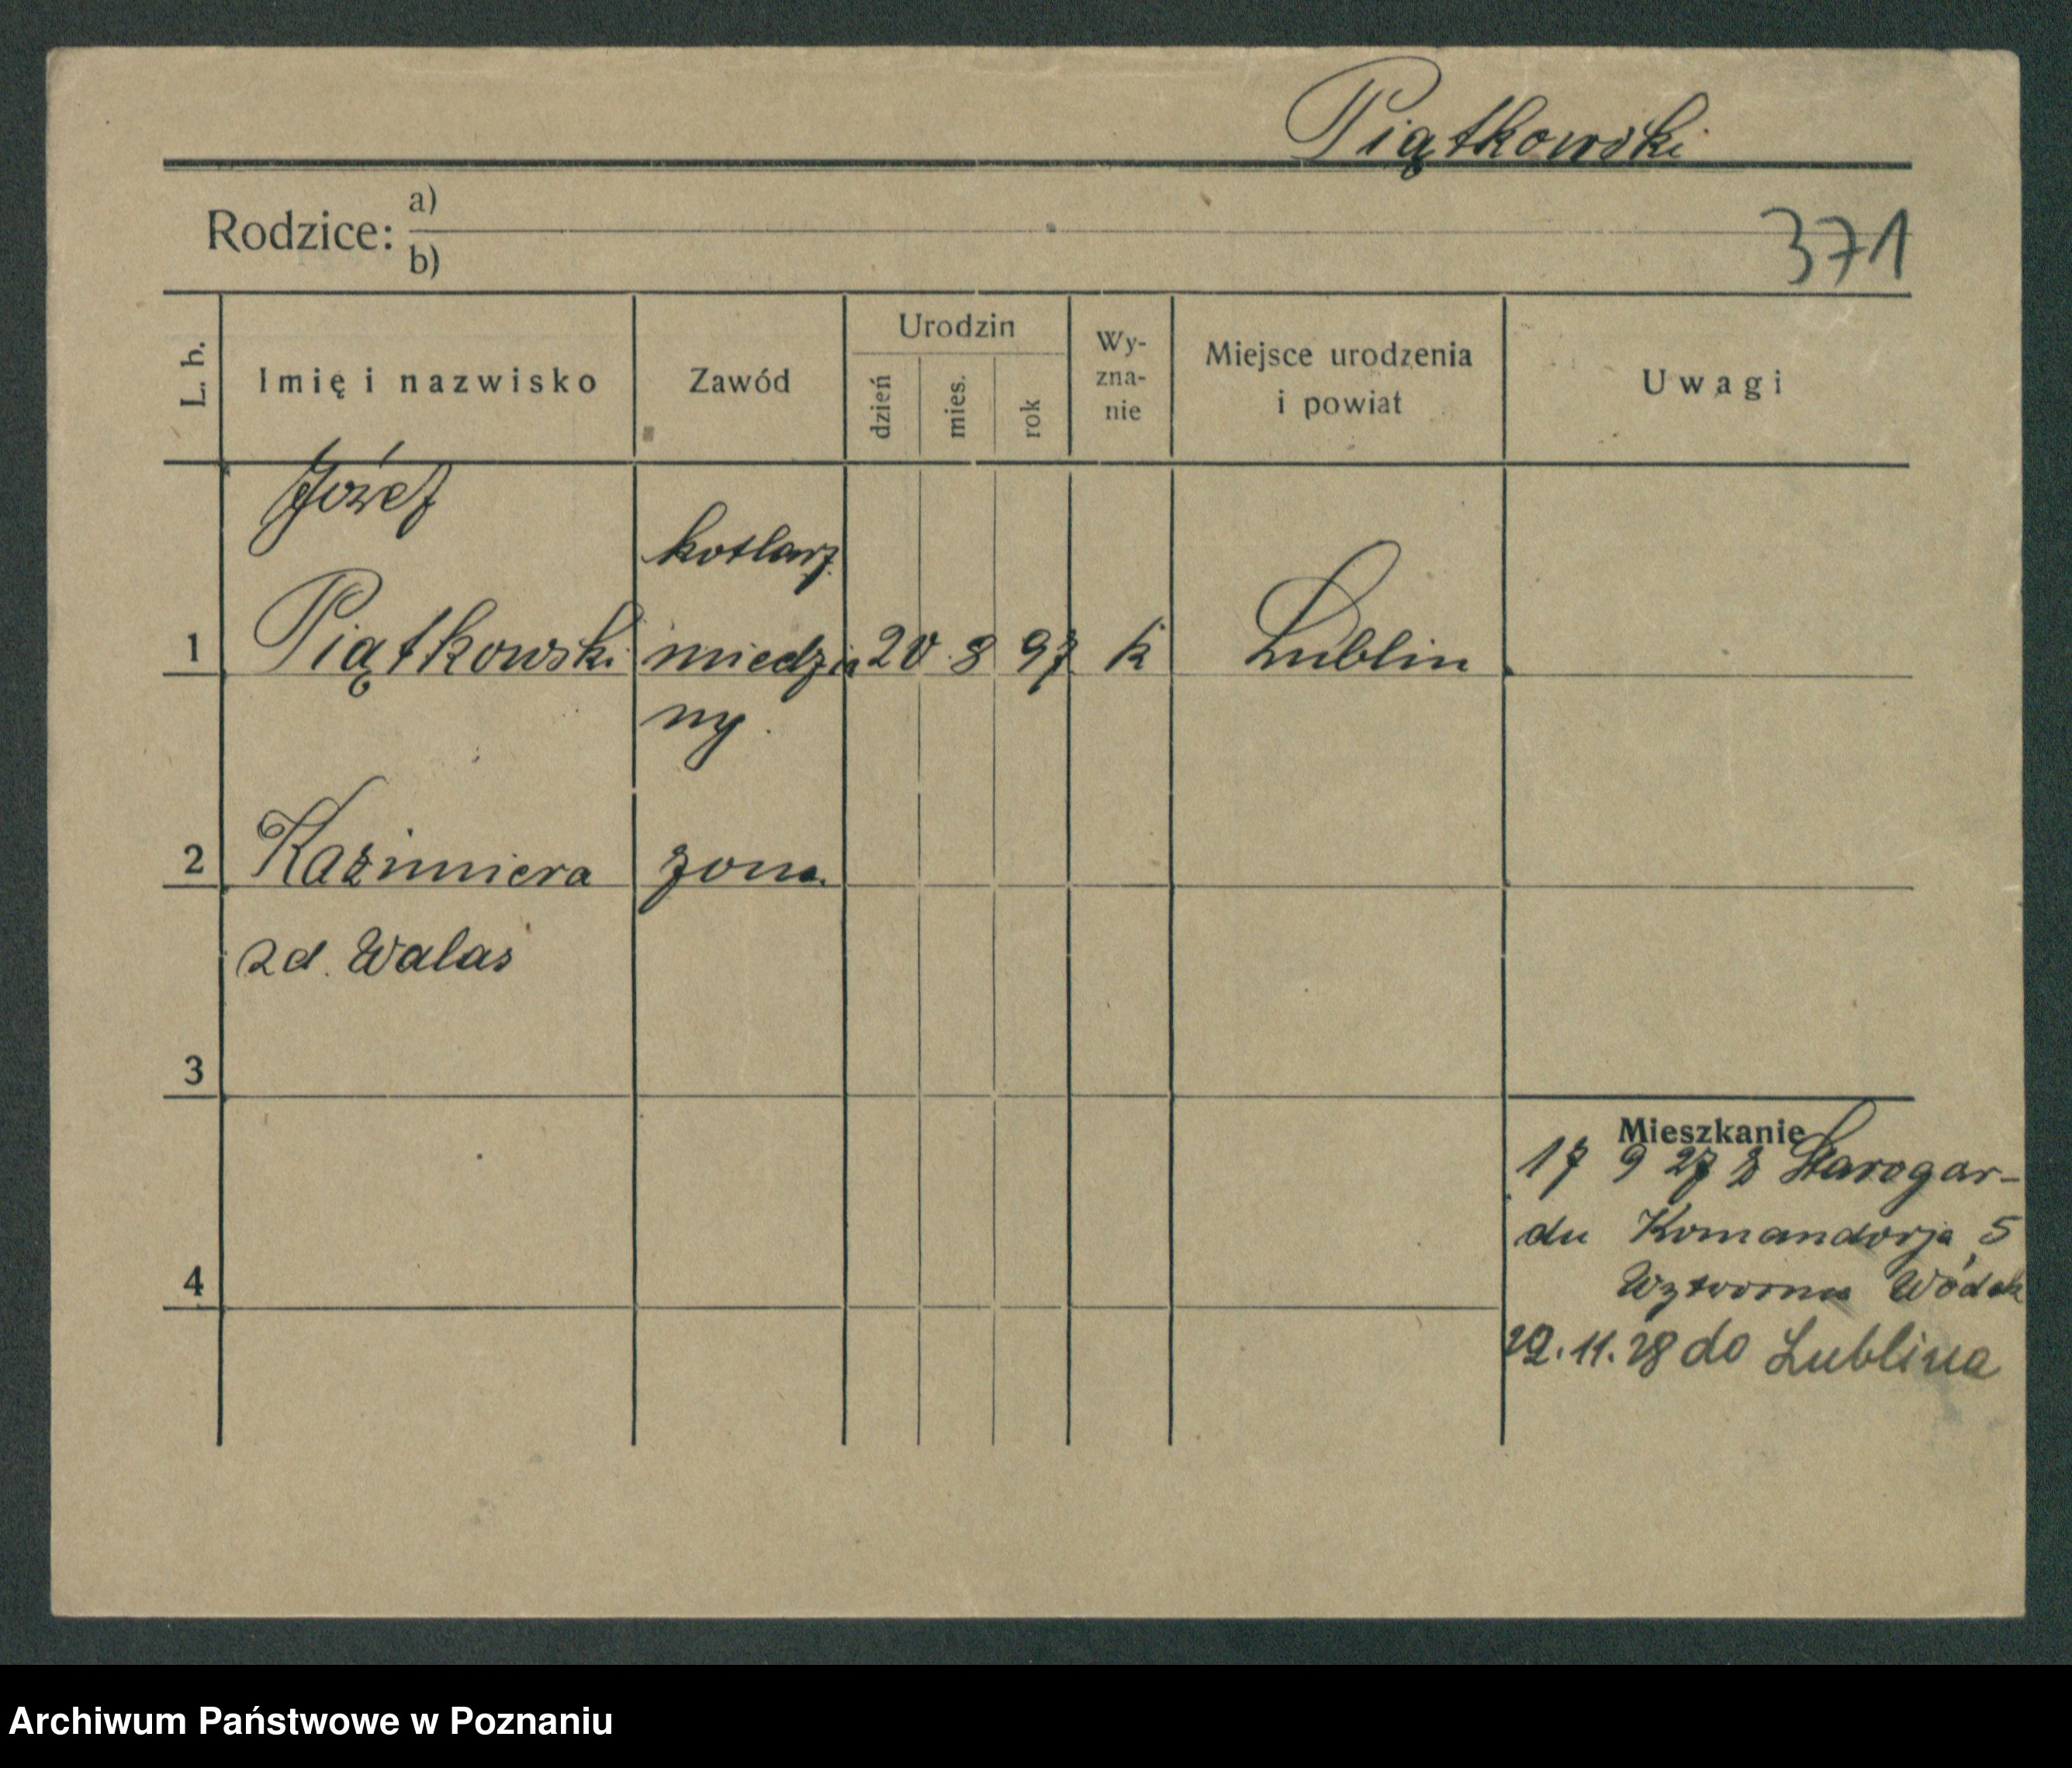 Piątkowski
Rodzice: a)
b)
371
L. b.
Imię i nazwisko
Zawód
Urodzin
dzień
mies.
rok
Wy-
zna-
nie
Miejsce urodzenia
i powiat
Uwagi
Józef
kotlarz
1 Piątkowski miedzia 20 8 97 k Lublin
ny.
2 Kazimiera żona
zd. Walas
3
Mieszkanie
17 9 27 z Starogar-
du Komandorja 5
4 Wytwornia Wódek
22.11.28 do Lublina
Archiwum Państwowe w Poznaniu